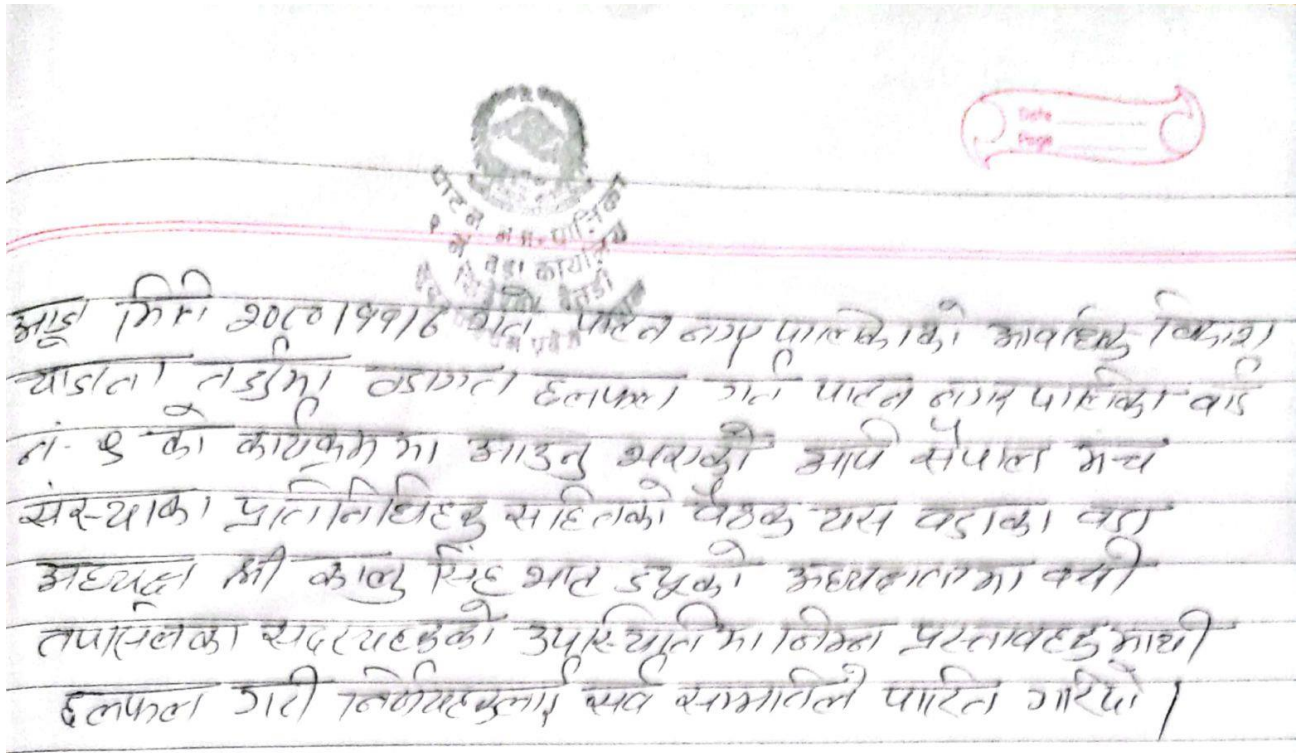 Date
Page
पाटन नगरपालिका
१ नं वडा कार्यालय
आज मिति २०८०।११।६ गते पाटन नगर पालिकाको आवधिक विकाश
योजना तर्जुमा वडागत छलफल गर्न पाटन नगर पालिका वार्ड
नं. १ को कार्यक्रम मा आउनु भएको आर्प सेपाल मन्च
संस्थाका प्रतिनिधिहरु सहितको बैठक यस वडाका वडा
अध्यक्ष श्री कालु सिंह भाट ज्यूको अध्यक्षतामा बसी
तपसिलका सदस्यहरुको उपस्थितिमा निम्न प्रस्तावहरु माथी
छलफल गरी निर्णयहरुलाई सर्व सम्मतिले पारित गरियो।